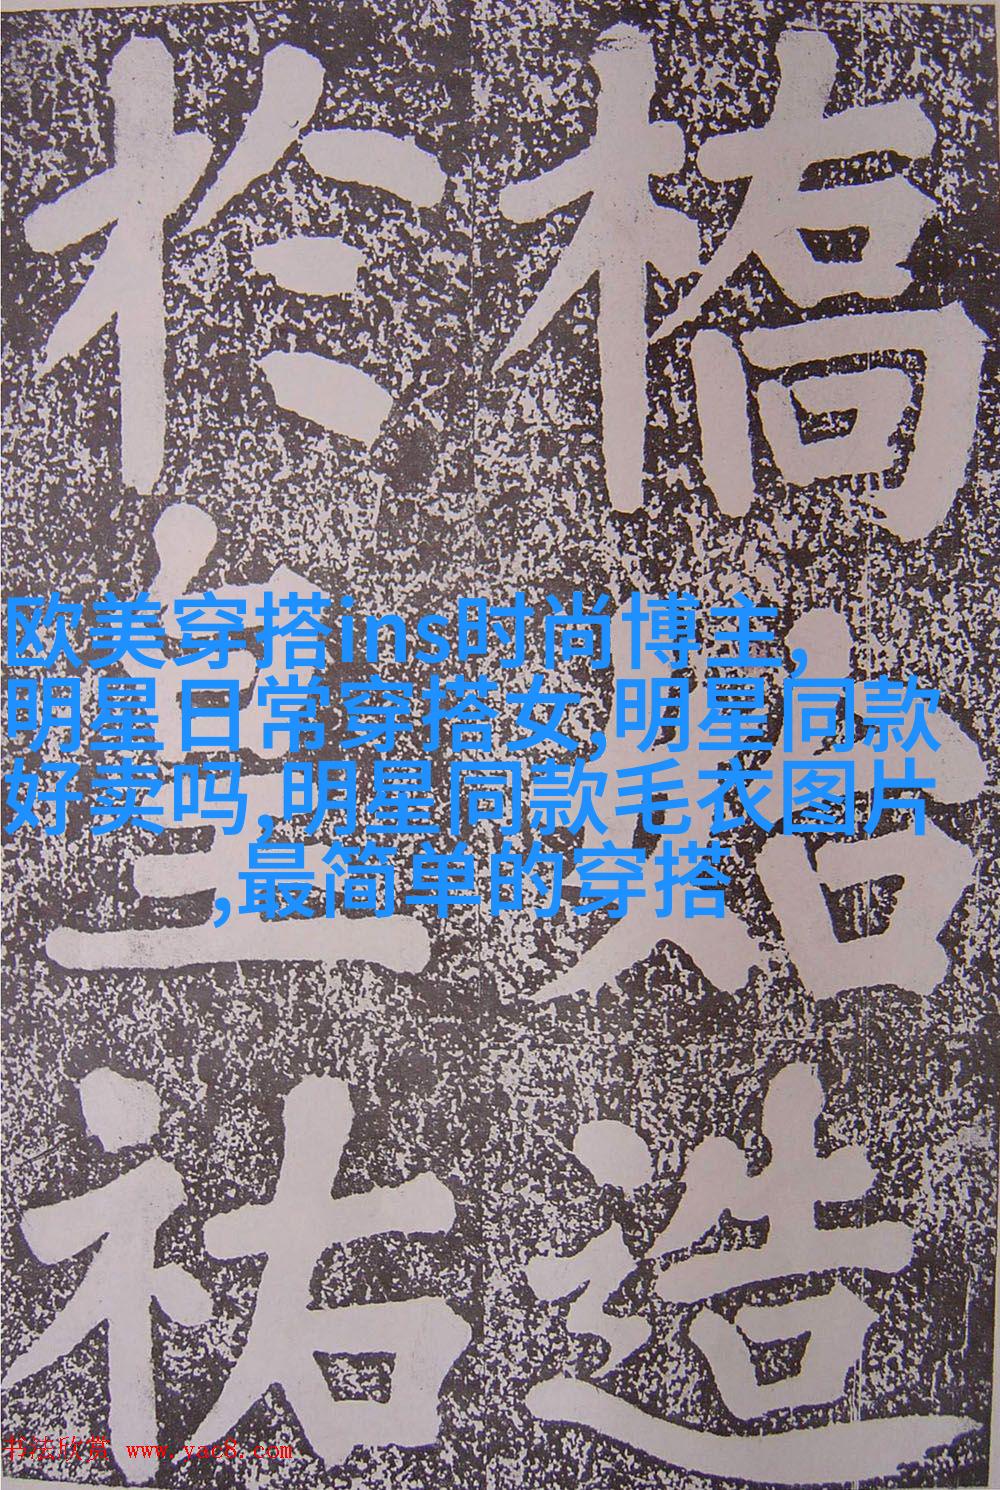 橋始造
扵皇祐
欧美穿搭ins时尚博主,
明星日常穿搭女,明星同款
好卖吗,明星同款毛衣图片
,最简单的穿搭
书法欣赏 www.yac8.com